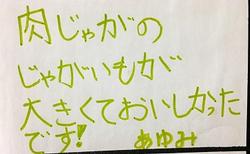 肉じゃがの
じゃがいもが
大きくておいしかった
です! あゆみ